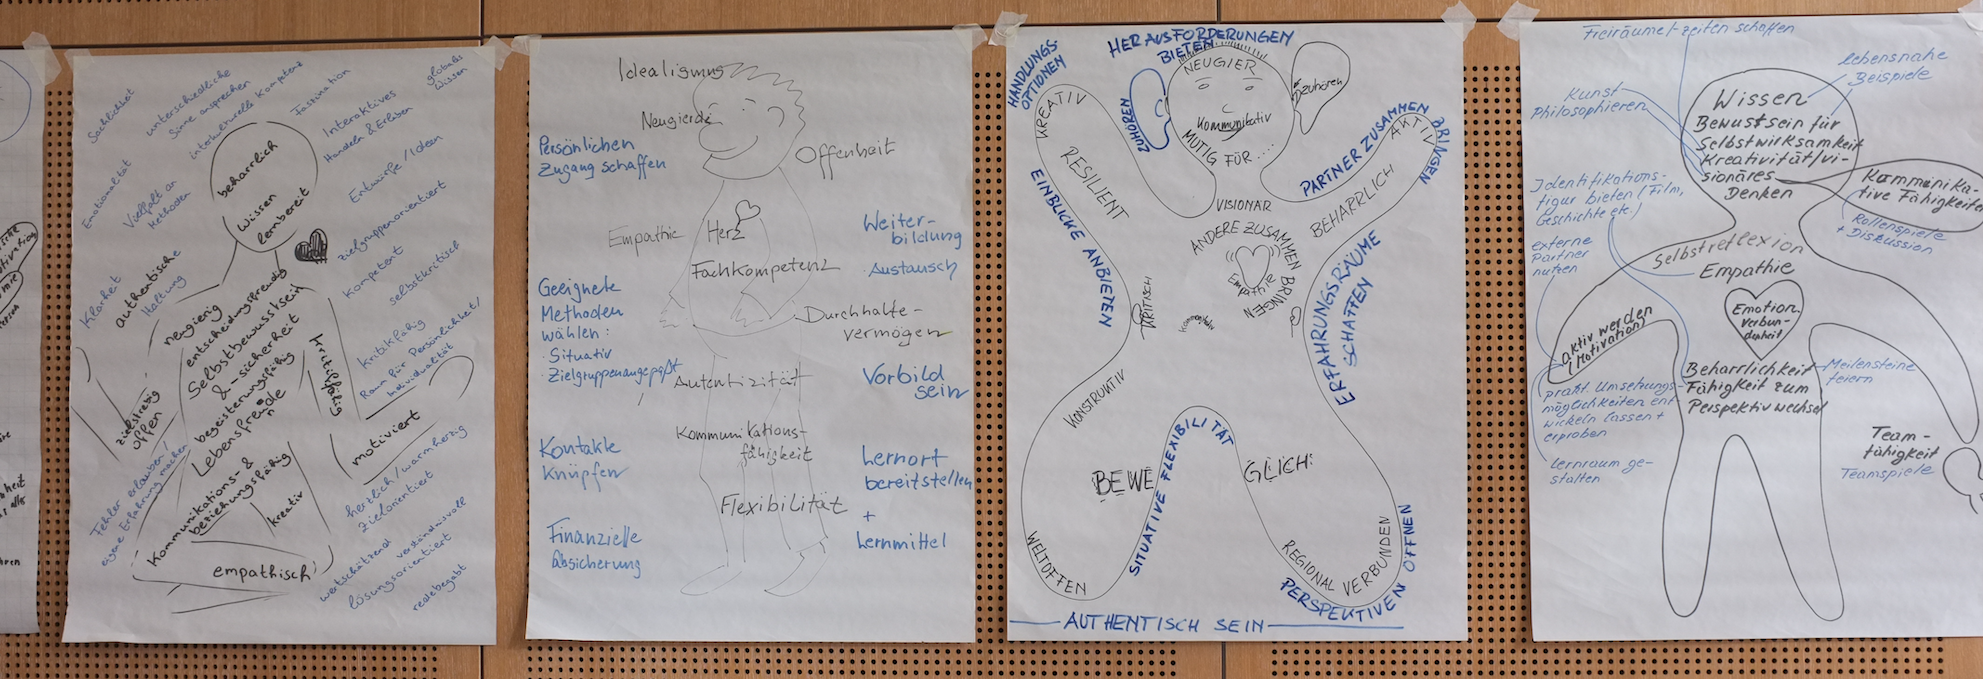 Sachlichkeit
unterschiedliche
Sinne ansprechen
interkulturelle Kompetenz
Faszination
globales
Wissen
Interaktives
Handeln & Erleben
Emotionalität
Vielfalt an
Methoden
beharrlich
Wissen
lernbereit
Entwürfe / Ideen
zielgruppenorientiert
kompetent
selbstkritisch
Klarheit
authentische
Haltung
neugierig
entscheidungsfreudig
Selbstbewusstsein
& -sicherheit
begeisterungsfähig
Lebensfreude
kritikfähig
kritikfähig
Raum für Persönlichkeit/
Individualität
zielstrebig
offen
motiviert
Fehler erlauben/
eigene Erfahrung machen
Kommunikations- &
beziehungsfähig
kreativ
empathisch
herzlich/warmherzig
zielorientiert
wertschätzend
verständnisvoll
lösungsorientiert
redebegabt
Idealismus
Neugierde
Persönlichen
Zugang schaffen
Offenheit
Empathie
Herz
Weiter-
bildung
Fachkompetenz
Austausch
Geeignete
Methoden
wählen:
· Situativ
· Zielgruppenangepaßt
Durchhalte-
vermögen
Autentizität
Vorbild
sein
Kommunikations-
fähigkeit
Kontakte
Knüpfen
Lernort
bereitstellen
+
Lernmittel
Flexibilität
Finanzielle
Absicherung
HANDLUNGS-
OPTIONEN
HERAUSFORDERUNGEN
BIETEN
NEUGIER
KREATIV
ZUHÖREN
Zuhören
Kommunikativ
MUTIG FÜR.....
PARTNER ZUSAMMEN
BRINGEN
AKTIV
RESILIENT
EINBLICKE ANBIETEN
VISIONÄR
BEHARRLICH
ANDERE ZUSAMMEN BRINGEN
Empathie
KRITISCH
ERFAHRUNGSRÄUME
SCHAFFEN
KONSTRUKTIV
BEWEGLICH
SITUATIVE FLEXIBILITÄT
WELTOFFEN
REGIONAL VERBUNDEN
PERSPEKTIVEN ÖFFNEN
AUTHENTISCH SEIN
Freiräume/-zeiten schaffen
lebensnahe
Beispiele
Kunst
Philosophieren
Wissen
Bewusstsein für
Selbstwirksamkeit
Kreativität/vi-
sionäres
Denken
Kommunika-
tive Fähigkeiten
Rollenspiele
+ Diskussion
Identifikations-
figur bieten (Film,
Geschichte etc.)
externe
Partner
nutzen
Selbstreflexion
Empathie
Emotion.
Verbun-
denheit
Aktiv werden
(Motivation)
Beharrlichkeit
Fähigkeit zum
Perspektivwechsel
Meilensteine
feiern
prakt. Umsetzungs-
möglichkeiten ent-
wickeln lassen +
erproben
Lernraum ge-
stalten
Team-
fähigkeit
Teamspiele